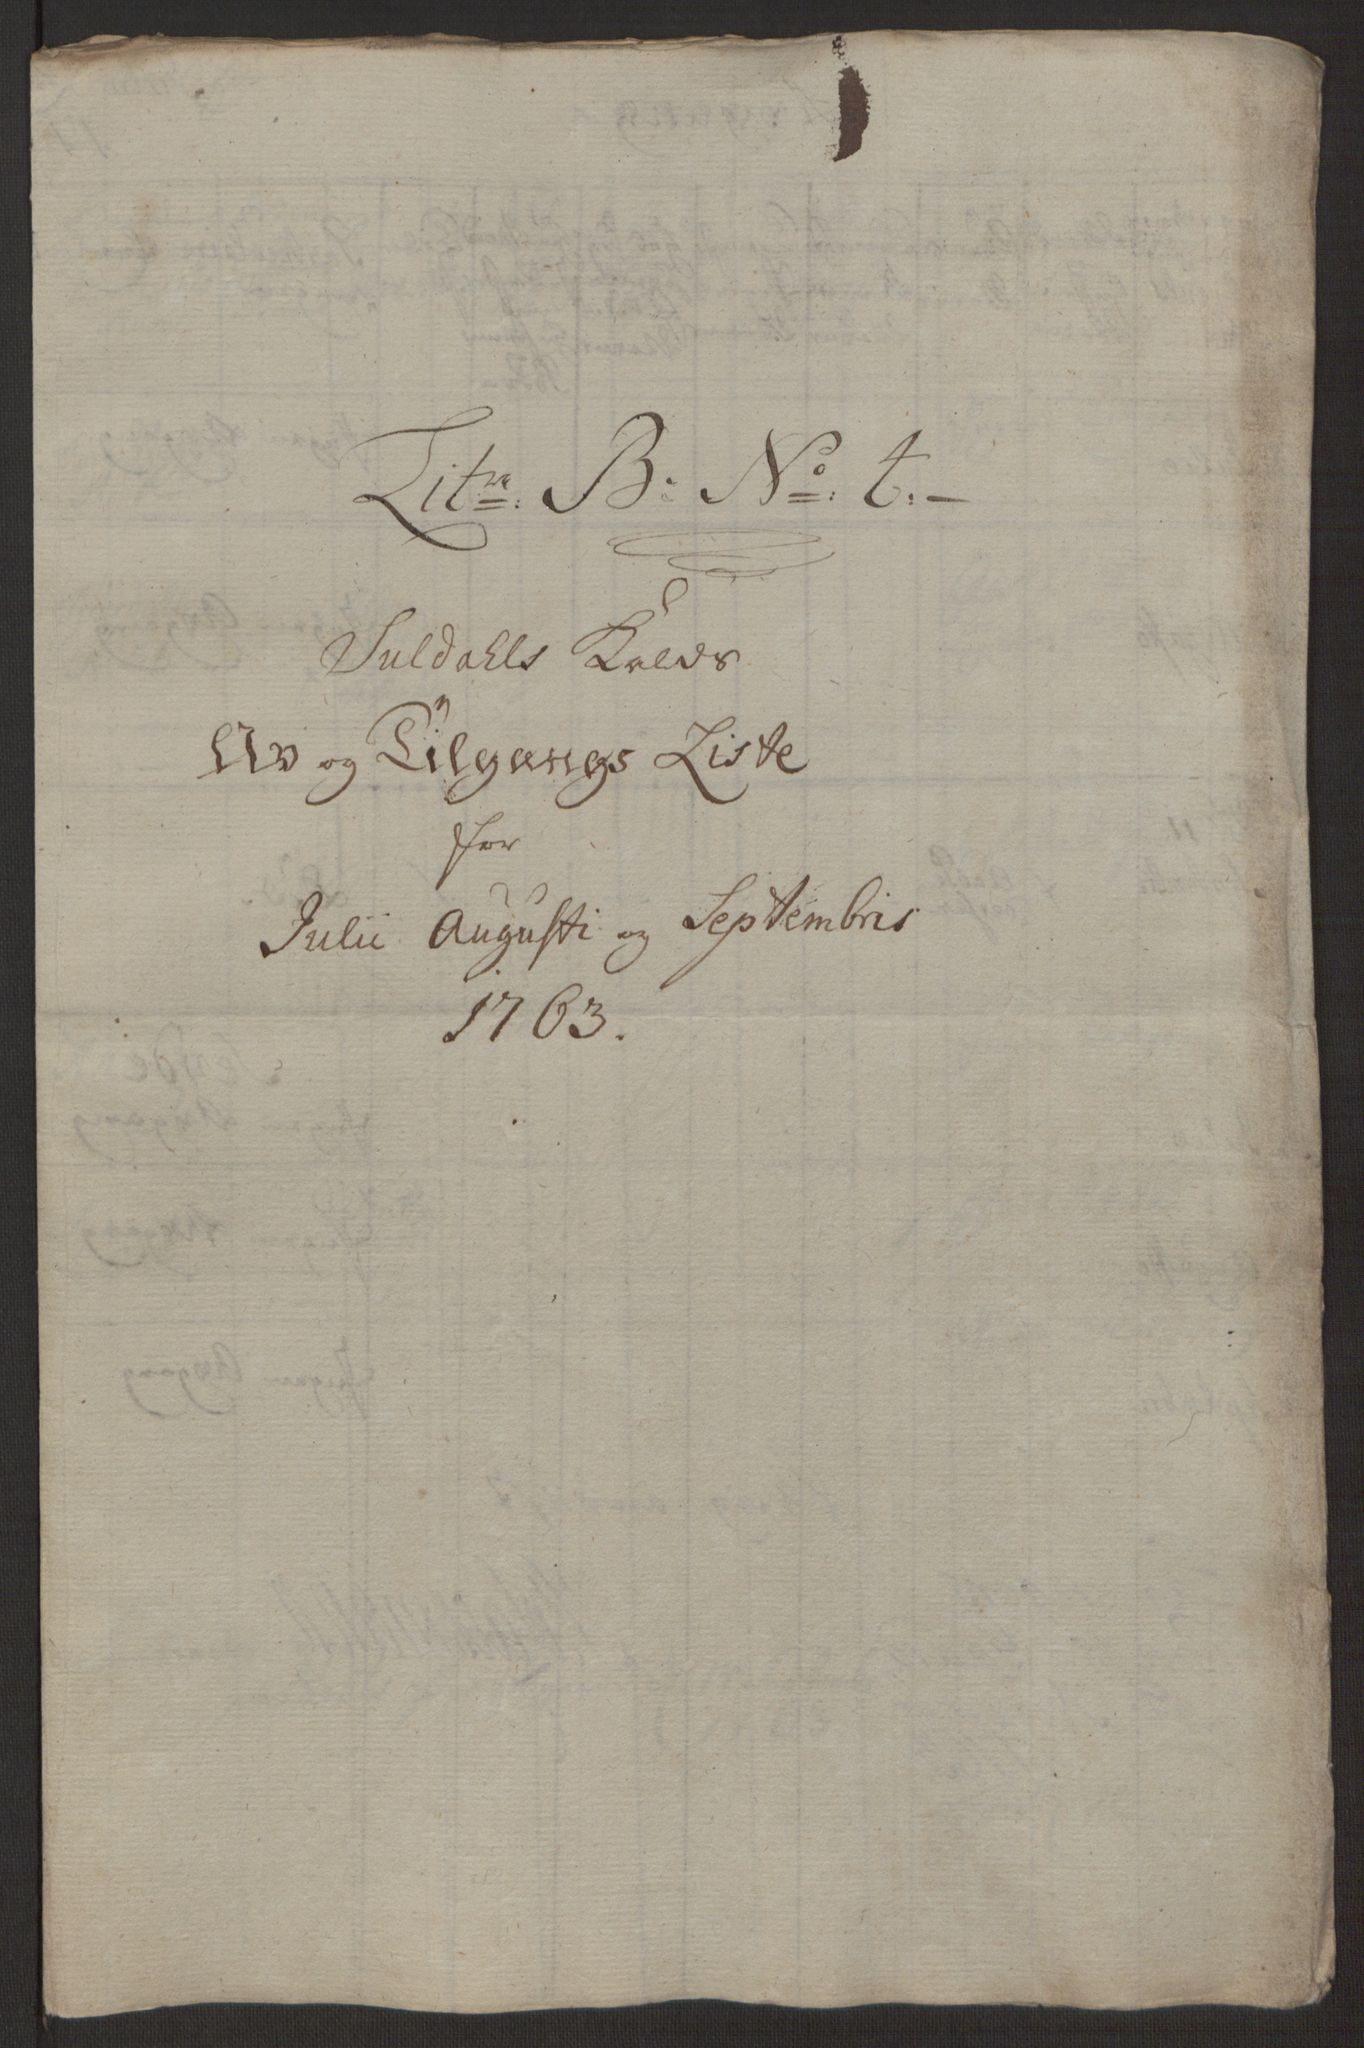 Litr: B: No: t.
Suldahls Kalds
Av og Tilgangs Liste
for
Julii Augusti og Septembris
1763.